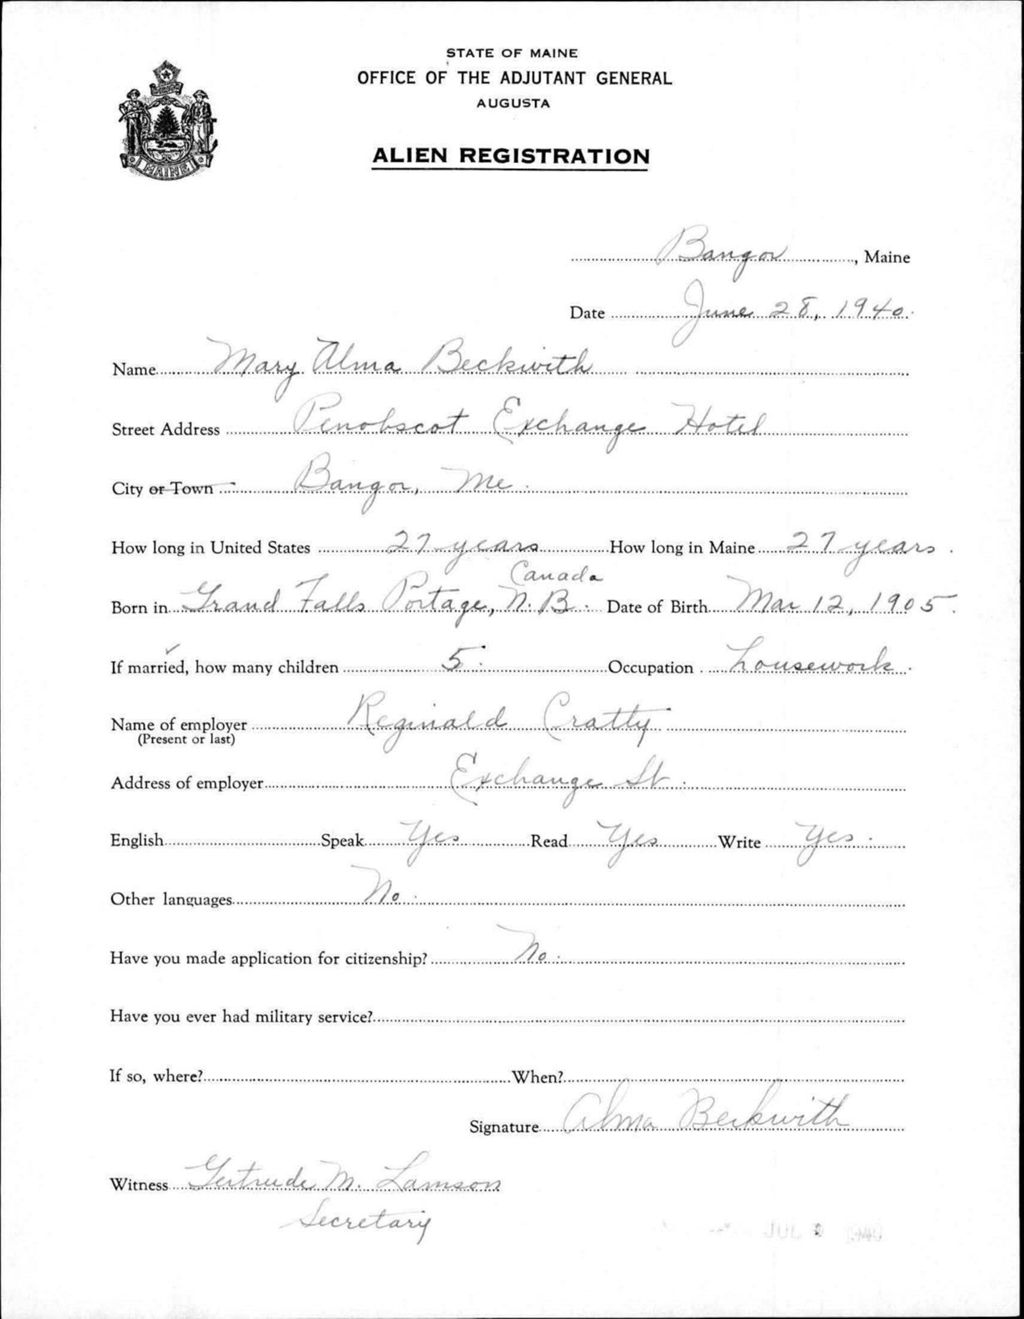 STATE OF MAINE
OFFICE OF THE ADJUTANT GENERAL
AUGUSTA
ALIEN REGISTRATION
MAINE
Bangor, Maine
Date June 28, 1940.
Name Mary Alma Beckwith
Street Address Penobscot Exchange Hotel
City or Town Bangor, Me.
How long in United States 27 years How long in Maine 27 years.
Canada
Born in Grand Falls Portage, N.B. Date of Birth Mar 12, 1905.
If married, how many children 5. Occupation housework.
Name of employer Reginald Cratty.
(Present or last)
Address of employer Exchange St.
English Speak Yes Read Yes Write Yes.
Other languages No.
Have you made application for citizenship? No.
Have you ever had military service?
If so, where? When?
Signature Alma Beckwith
Witness Gertrude M. Lamson
Secretary
JUL